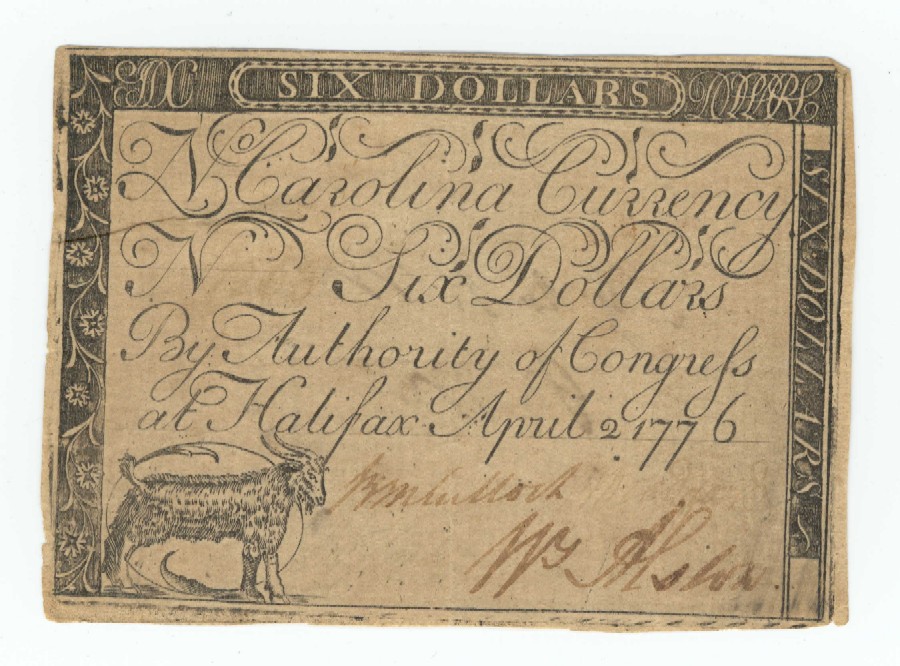 SIX SIX DOLLARS DOLLARS
No Carolina Currency
N Six Dollars
By Authority of Congreſs
at Halifax April 2 1776
Wm Alston
SIX DOLLARS